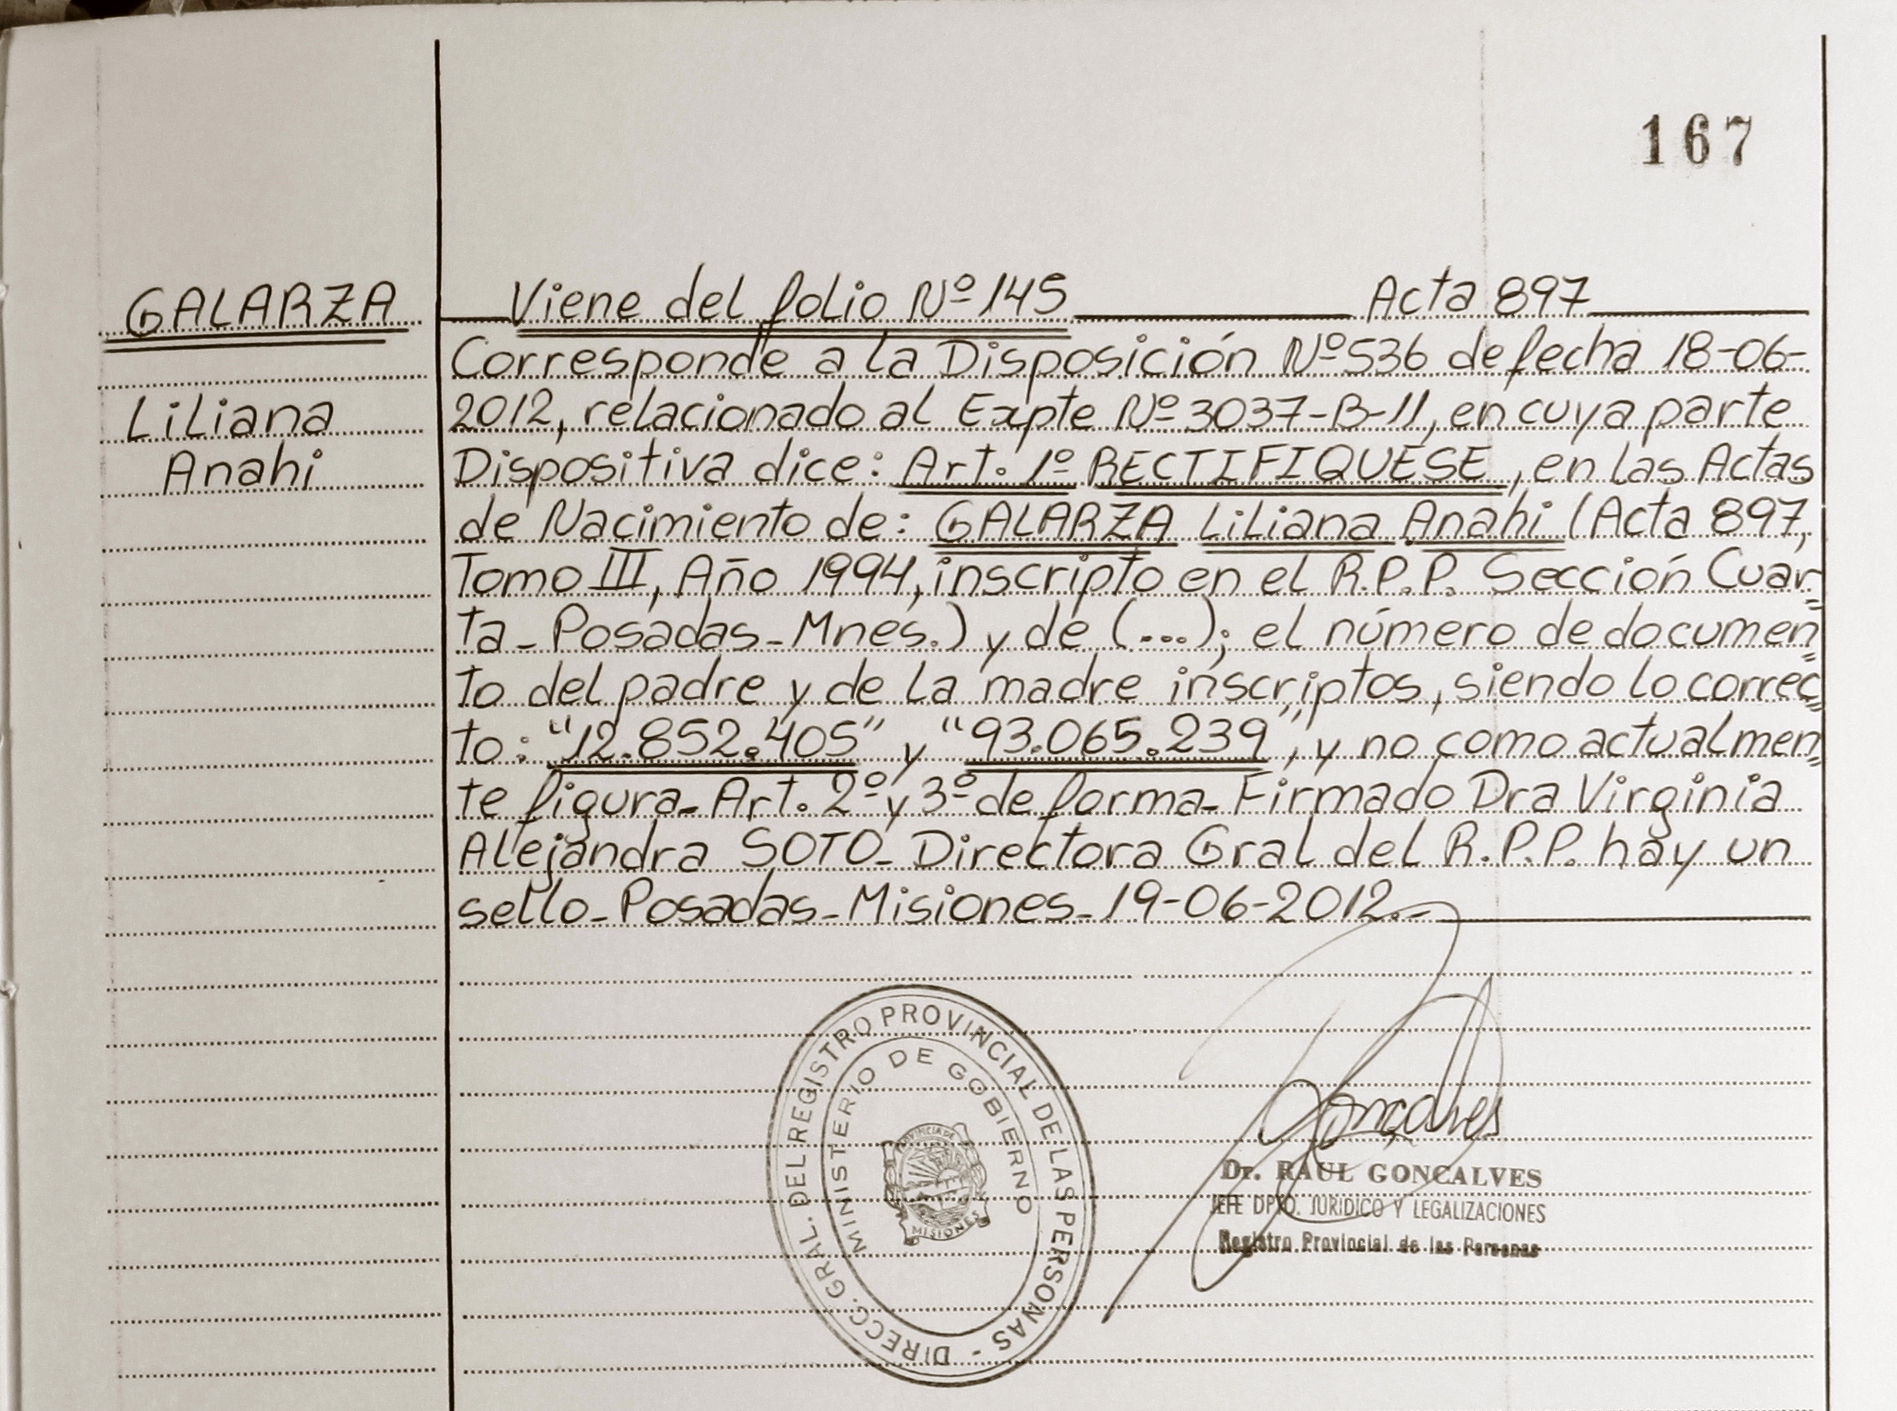 167
GALARZA
Liliana
Anahi
Viene del folio Nº 145 Acta 897
Corresponde a la Disposición Nº 536 de fecha 18-06-
2012, relacionado al Expte Nº 3037-B-11, en cuya parte
Dispositiva dice: Art. 1º RECTIFIQUESE, en las Actas
de Nacimiento de: GALARZA Liliana Anahi (Acta 897,
Tomo III, Año 1994, inscripto en el R.P.P. Sección Cuar=
ta - Posadas - Mnes.) y de (...); el número de documen=
to del padre y de la madre inscriptos, siendo lo correc=
to: "12.852.405" y "93.065.239", y no como actualmen=
te figura - Art. 2º y 3º de forma - Firmado Dra Virginia
Alejandra SOTO - Directora Gral del R.P.P. hay un
sello - Posadas - Misiones - 19-06-2012.-
DIRECC. GRAL. DEL REGISTRO PROVINCIAL DE LAS PERSONAS -
MINISTERIO DE GOBIERNO
PROVINCIA DE
MISIONES
Gonçalves
Dr. RAUL GONCALVES
JEFE DPTO. JURIDICO Y LEGALIZACIONES
Registro Provincial de las Personas